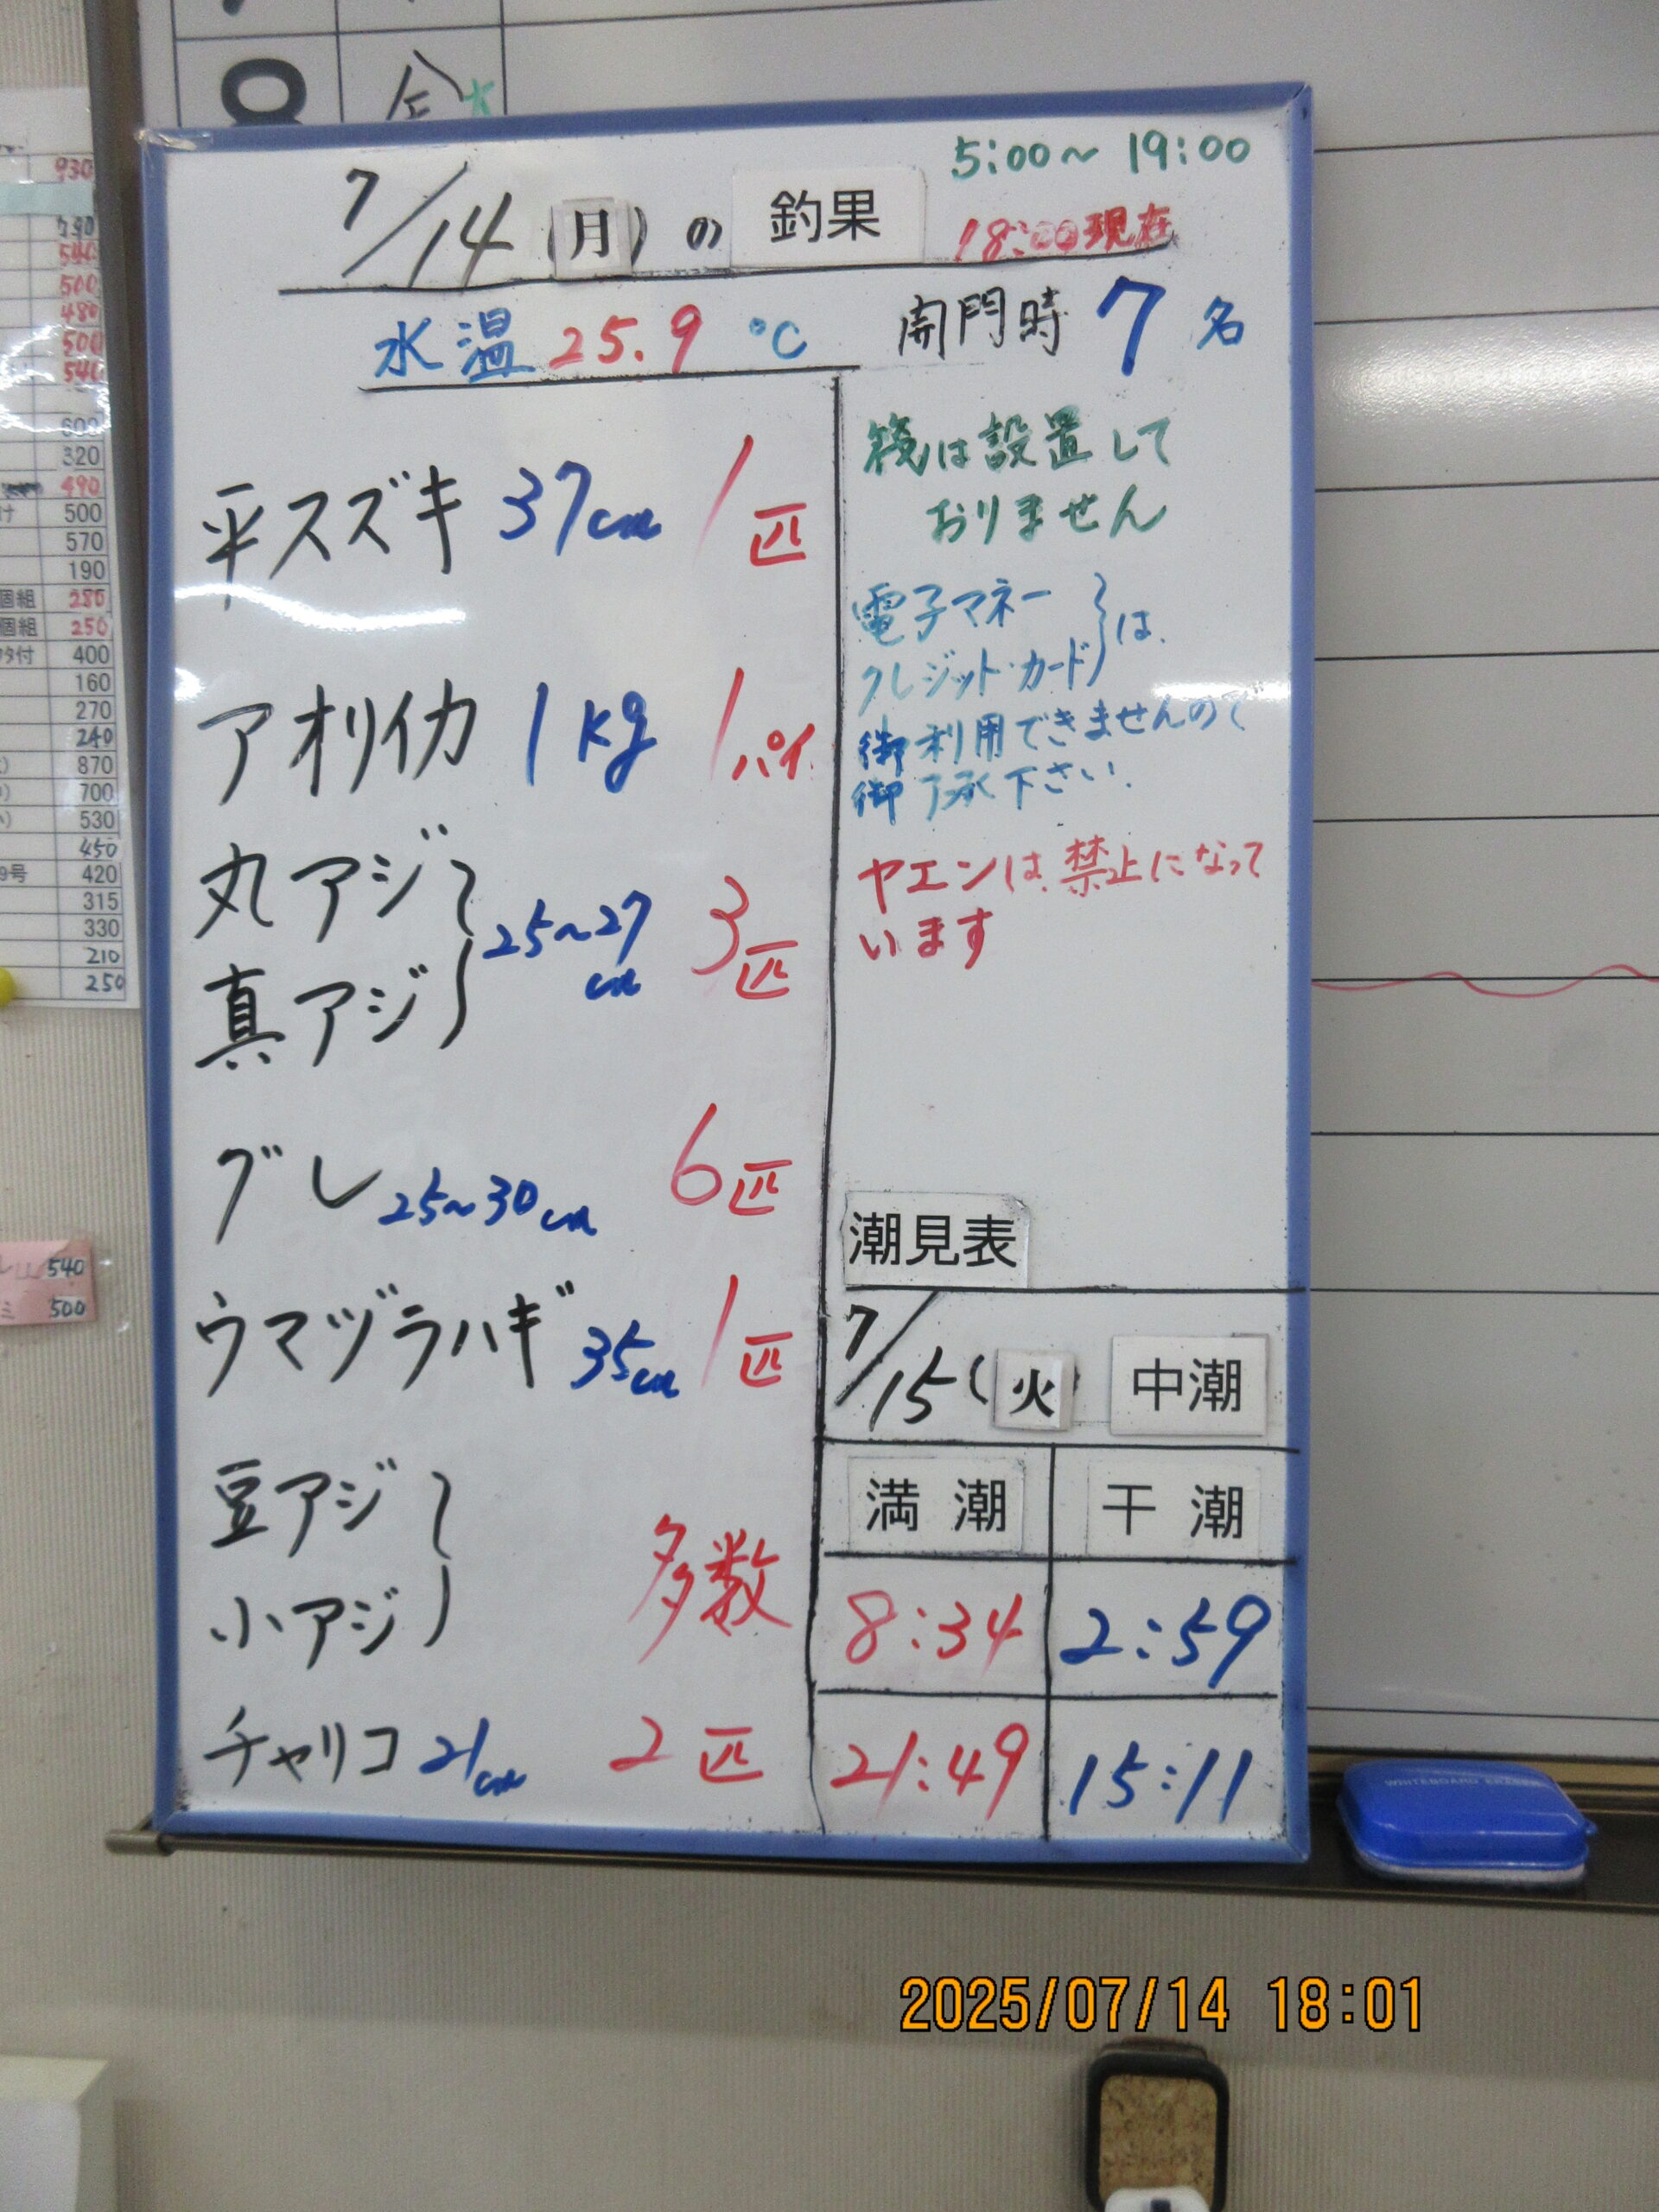 5:00～19:00
7/14(月)の釣果
18:00現在
水温 25.9 ℃
開門時 7 名
平スズキ 37cm 1匹
アオリイカ 1kg 1パイ
丸アジ
真アジ
25～27cm 3匹
グレ 25～30cm 6匹
ウマヅラハギ 35cm 1匹
豆アジ
小アジ
多数
チャリコ 21cm 2匹
筏は設置して
おりません
電子マネー
クレジット・カード
は
御利用できませんので
御了承下さい.
ヤエンは禁止になって
います
潮見表
7/15(火) 中潮
満潮 干潮
8:34 2:59
21:49 15:11
930
790
540
500
480
500
540
600
320
490
500
570
190
個組 280
個組 250
400
160
270
240
870
700
530
450
9号 420
315
330
210
250
540
ミ 500
WHITEBOARD ERASER
2025/07/14 18:01